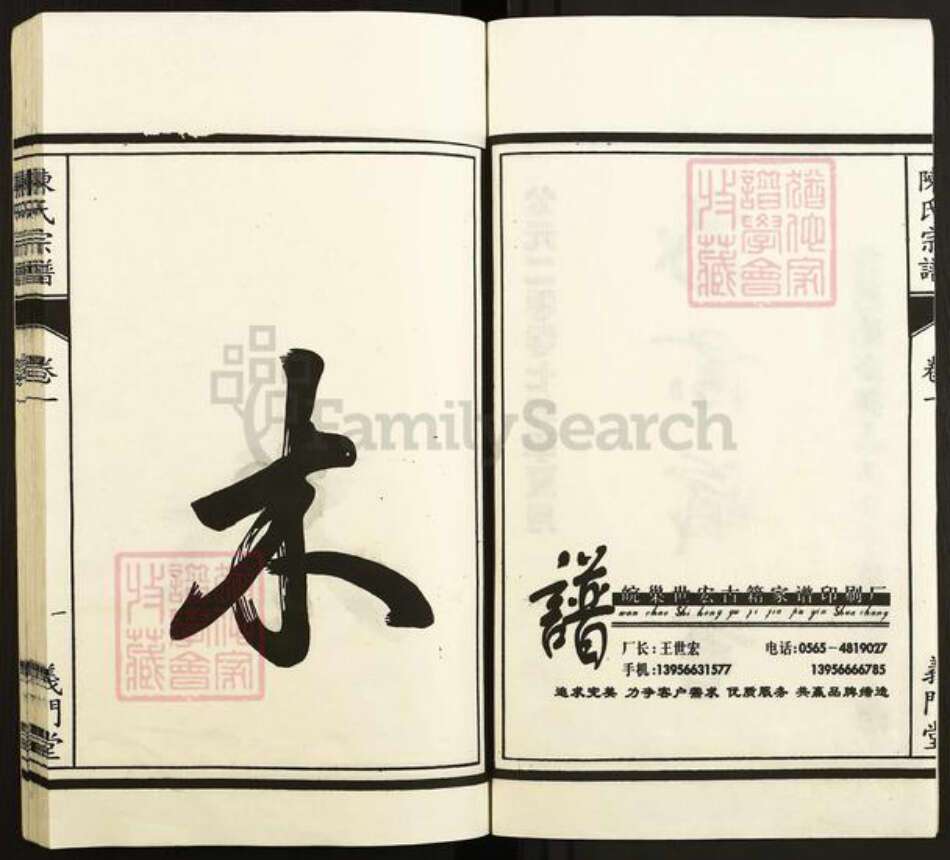 陳氏宗譜
卷一
一
義門堂
木
FamilySearch
猶他家
譜學會
收藏
譜
皖巢世宏古籍家谱印刷厂
wan chao Shi hong gu ji jia pu yin Shua chang
厂长：王世宏
电话：0565－4819027
手机：13956631577
13956666785
追求完美 力争客户需求 优质服务 共赢品牌缔造
陳氏宗譜
卷一
義門堂
猶他家
譜學會
收藏